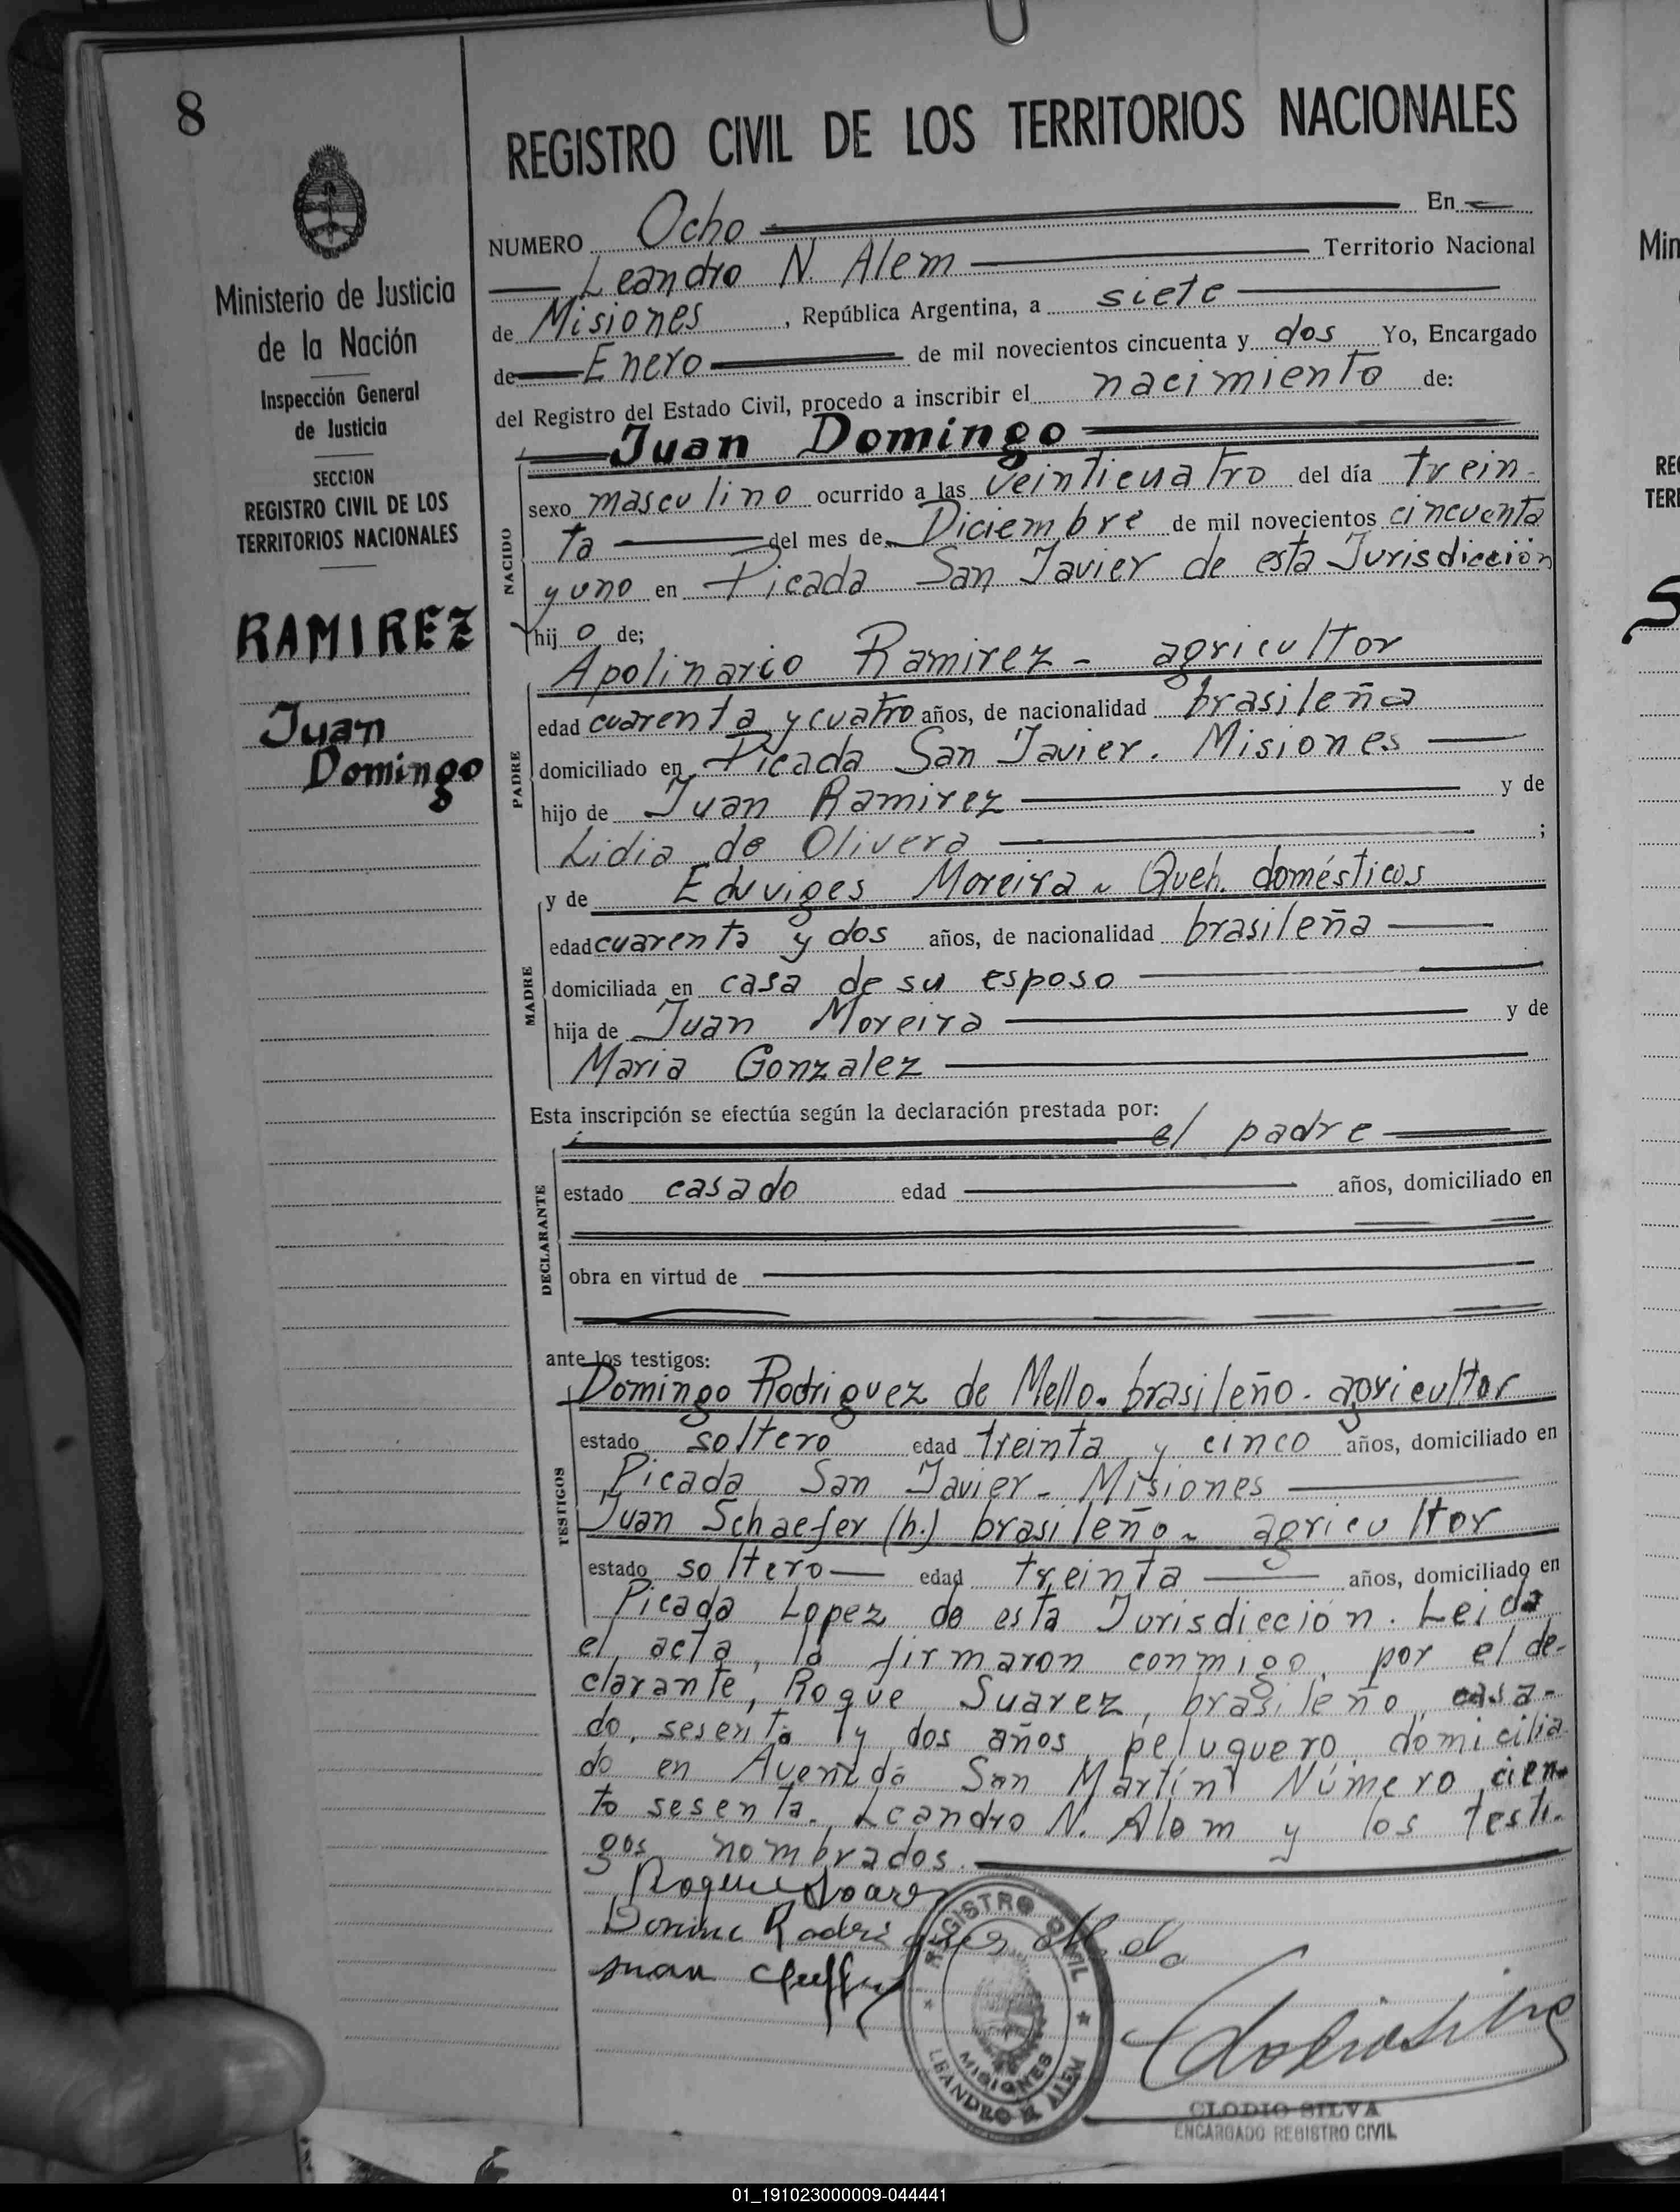 8
REGISTRO CIVIL DE LOS TERRITORIOS NACIONALES
Ministerio de Justicia
de la Nación
Inspección General
de Justicia
SECCION
REGISTRO CIVIL DE LOS
TERRITORIOS NACIONALES
RAMIREZ
Juan
Domingo
NUMERO Ocho En
Leandro N. Alem Territorio Nacional
de Misiones, República Argentina, a siete
de Enero de mil novecientos cincuenta y dos Yo, Encargado
del Registro del Estado Civil, procedo a inscribir el nacimiento de:
Juan Domingo
NACIDO
sexo masculino ocurrido a las veinticuatro del día trein-
ta del mes de Diciembre de mil novecientos cincuenta
y uno en Picada San Javier de esta Jurisdicción
hijo de;
Apolinario Ramirez - agricultor
PADRE
edad cuarenta y cuatro años, de nacionalidad brasileña
domiciliado en Picada San Javier. Misiones
hijo de Juan Ramirez y de
Lidia de Olivera ;
y de Eduviges Moreira - Queh. domésticos
MADRE
edad cuarenta y dos años, de nacionalidad brasileña
domiciliada en casa de su esposo
hija de Juan Moreira y de
Maria Gonzalez
Esta inscripción se efectúa según la declaración prestada por:
el padre
DECLARANTE
estado casado edad años, domiciliado en
obra en virtud de
ante los testigos:
Domingo Rodriguez de Mello. brasileño. agricultor
TESTIGOS
estado soltero edad treinta y cinco años, domiciliado en
Picada San Javier - Misiones
Juan Schaefer (h.) brasileño - agricultor
estado soltero edad treinta años, domiciliado en
Picada Lopez de esta Jurisdicción. Leida
el acta, la firmaron conmigo, por el de-
clarante, Roque Suarez, brasileño, casa-
do, sesenta y dos años, peluquero, domicilia
do en Avenida San Martín Número cien-
to sesenta. Leandro N. Alem y los testi-
gos nombrados.
REGISTRO CIVIL
MISIONES
LEANDRO N. ALEM
CLODIO SILVA
ENCARGADO REGISTRO CIVIL
Min
01_191023000009-044441